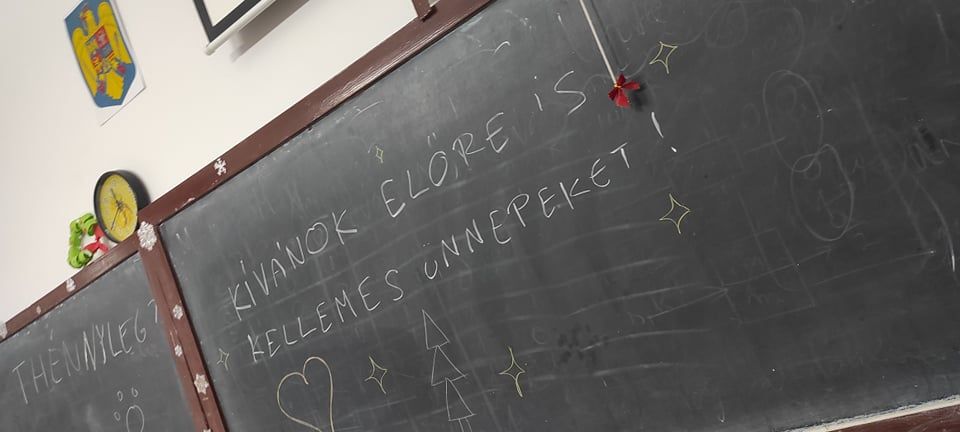 KÍVÁNOK ELŐRE IS
KELLEMES ÜNNEPEKET!
THÉNNYLEG?